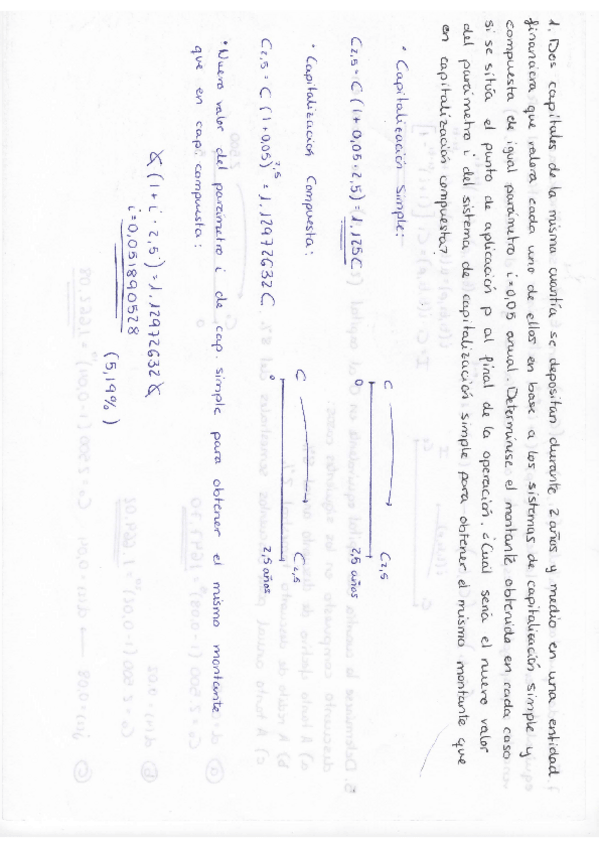 1. Dos capitales de la misma cuantía se depositan durante 2 años y medio en una entidad
financiera que valora cada uno de ellos en base a los sistemas de capitalización simple y
compuesta de igual parámetro i=0,05 anual. Determínese el montante obtenido en cada caso
si se sitúa el punto de aplicación p al final de la operación. ¿Cuál sería el nuevo valor
del parámetro i del sistema de capitalización simple para obtener el mismo montante que
en capitalización compuesta?
• Capitalización Simple:
C2,5 = C (1+0,05·2,5) = 1,125C
C C2,5
0 2,5 años
• Capitalización Compuesta:
C2,5 = C (1+0,05)^2,5 = 1,12972632C
C C2,5
0 2,5 años
• Nuevo valor del parámetro i de cap. simple para obtener el mismo montante
que en cap. compuesta:
C (1+i·2,5) = 1,12972632C
i = 0,051890528
(5,19%)